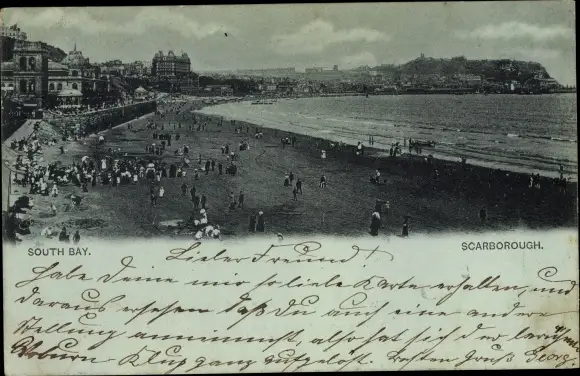 SOUTH BAY.
SCARBOROUGH.
Lieber Freund!
Habe Deine mir so liebe Karte erhalten, und
daraus ersehen daß Du auch eine andere
Stellung annimmst, also hat sich der
Klup ganz aufgelöst. Besten Gruß Georg.